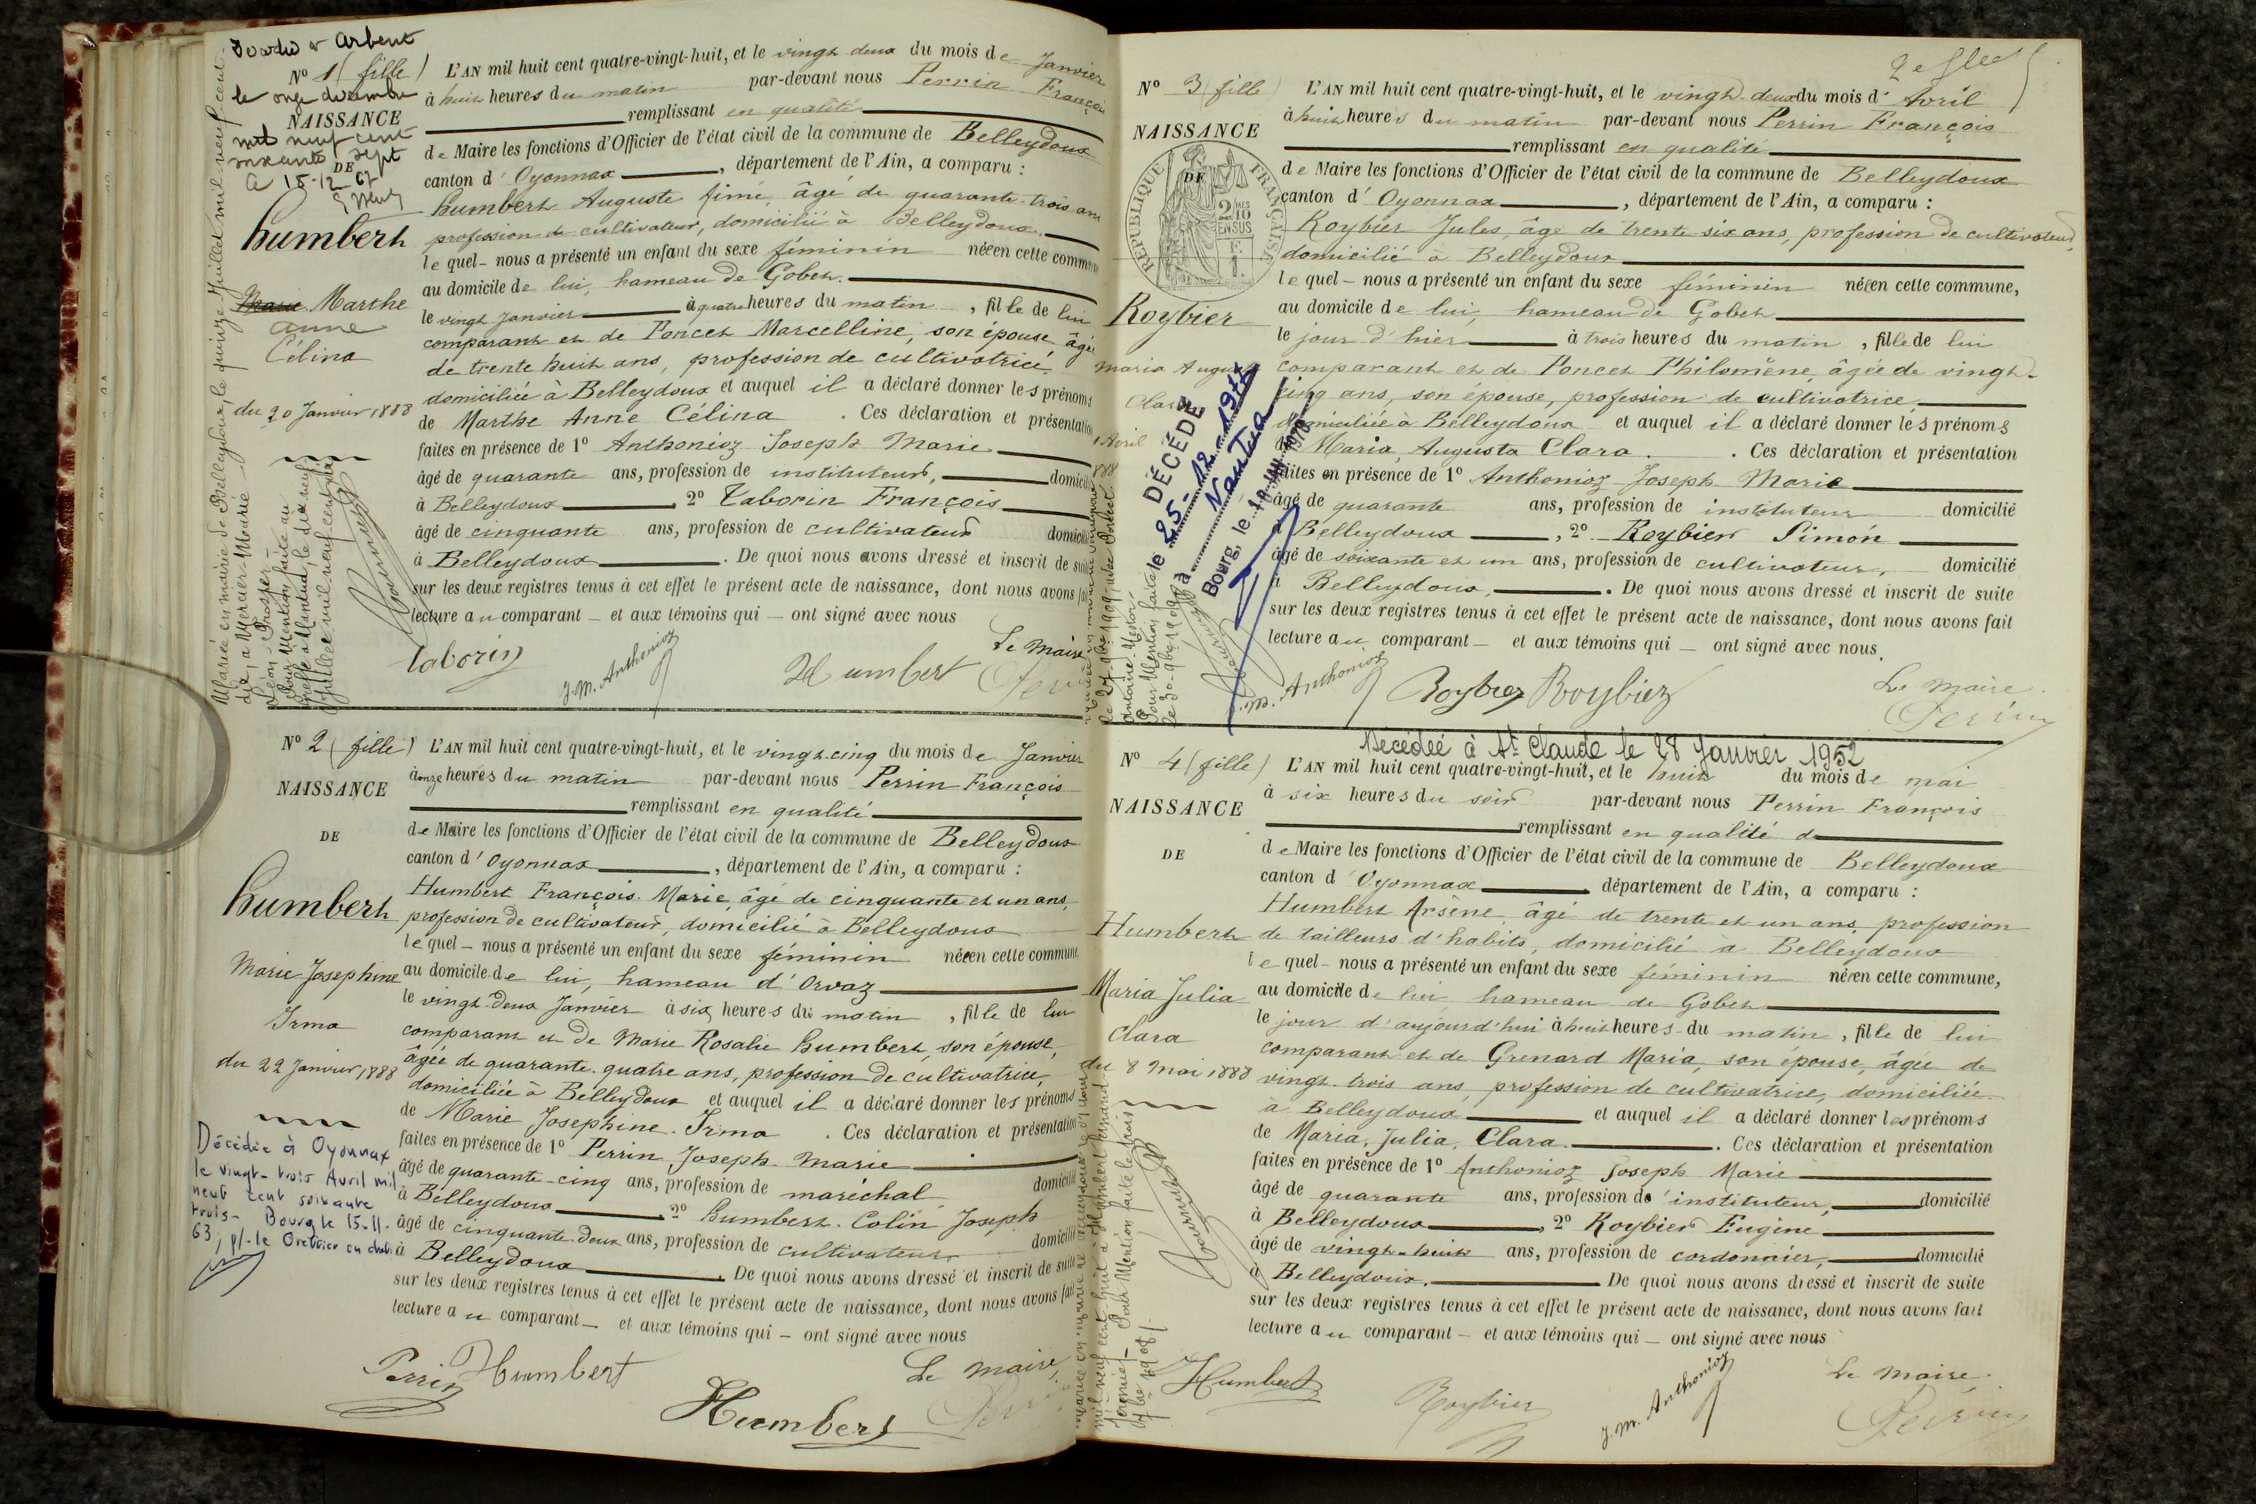 Nº 1 (fille)
le onze décembre
NAISSANCE
mil neuf cent
soixante sept
DE
A 15-12 67
humbert
Marie Marthe
Anne
Célina
du 20 Janvier 1888
Mariée en mairie de Belleydoux, le quinze Juillet mil neuf cent
dix, à Mercier-
Léon Prosper
Pour Mention faite au
greffe à Nantua, le dix neuf
Juillet mil neuf cent dix
L'AN mil huit cent quatre-vingt-huit, et le vingt deux du mois de Janvier
à huit heures du matin par-devant nous Perrin François
remplissant en qualité
de Maire les fonctions d'Officier de l'état civil de la commune de Belleydoux
canton d'Oyonnax, département de l'Ain, a comparu :
humbert Auguste fimé, âgé de quarante-trois ans
profession de cultivateur, domicilié à Belleydoux
lequel nous a présenté un enfant du sexe féminin néeen cette commune
au domicile de lui, hameau de Gobet
le vingt Janvier à quatre heures du matin, fille de lui
comparant et de Poncet Marcelline, son épouse âgée
de trente huit ans, profession de cultivatrice,
domiciliée à Belleydoux et auquel il a déclaré donner les prénoms
de Marthe Anne Célina. Ces déclaration et présentation
faites en présence de 1º Anthonioz Joseph Marie
âgé de quarante ans, profession de instituteur, domicilié
à Belleydoux 2º Taborin François
âgé de cinquante ans, profession de cultivateur domicilié
à Belleydoux. De quoi nous avons dressé et inscrit de suite
sur les deux registres tenus à cet effet le présent acte de naissance, dont nous avons fait
lecture au comparant et aux témoins qui ont signé avec nous
Le Maire
Taborin J.M. Anthonioz Humbert Perrin
Nº 2 (fille)
NAISSANCE
DE
humbert
Marie Josephine
Irma
du 22 Janvier 1888
Décédée à Oyonnax
le vingt-trois Avril mil
neuf cent soixante
trois- Bourg le 15.11.
63, p/- le Greffier en chef
L'AN mil huit cent quatre-vingt-huit, et le vingt-cinq du mois de Janvier
à onze heures du matin par-devant nous Perrin François
remplissant en qualité
de Maire les fonctions d'Officier de l'état civil de la commune de Belleydoux
canton d'Oyonnax, département de l'Ain, a comparu :
Humbert François Marie, âgé de cinquante et un ans,
profession de cultivateur, domicilié à Belleydoux
lequel nous a présenté un enfant du sexe féminin néeen cette commune
au domicile de lui, hameau d'Orvaz
le vingt-deux Janvier à six heures du matin, fille de lui
comparant et de Marie Rosalie humbert, son épouse,
âgée de quarante-quatre ans, profession de cultivatrice,
domiciliée à Belleydoux et auquel il a déclaré donner les prénoms
de Marie Josephine Irma. Ces déclaration et présentation
faites en présence de 1º Perrin Joseph Marie
âgé de quarante-cinq ans, profession de maréchal domicilié
à Belleydoux 2º humbert-Colin Joseph
âgé de cinquante-deux ans, profession de cultivateur domicilié
à Belleydoux. De quoi nous avons dressé et inscrit de suite
sur les deux registres tenus à cet effet le présent acte de naissance, dont nous avons fait
lecture au comparant et aux témoins qui ont signé avec nous
Le Maire,
Perrin Humbert Humbert Perrin
Nº 3 (fille)
NAISSANCE
DE
RÉPUBLIQUE FRANÇAISE
2 MES 10 EN SUS
Roybier
Maria Augusta
Clara
Avril
DÉCÉDÉ
le 25-12-1977
à Nantua
Bourg, le
L'AN mil huit cent quatre-vingt-huit, et le vingt-deux du mois d'Avril
à huit heures du matin par-devant nous Perrin François
remplissant en qualité
de Maire les fonctions d'Officier de l'état civil de la commune de Belleydoux
canton d'Oyonnax, département de l'Ain, a comparu :
Roybier Jules, âgé de trente-six ans, profession de cultivateur,
domicilié à Belleydoux
lequel nous a présenté un enfant du sexe féminin néeen cette commune,
au domicile de lui, hameau de Gobet
le jour d'hier à trois heures du matin, fille de lui
comparant et de Poncet Philomène, âgée de vingt-
cinq ans, son épouse, profession de cultivatrice,
domiciliée à Belleydoux et auquel il a déclaré donner les prénoms
de Maria, Augusta Clara. Ces déclaration et présentation
faites en présence de 1º Anthonioz Joseph Marie
âgé de quarante ans, profession de instituteur domicilié
à Belleydoux, 2º Roybier Simon
âgé de soixante et un ans, profession de cultivateur, domicilié
à Belleydoux. De quoi nous avons dressé et inscrit de suite
sur les deux registres tenus à cet effet le présent acte de naissance, dont nous avons fait
lecture au comparant et aux témoins qui ont signé avec nous.
Le Maire
J.M. Anthonioz Roybier Roybier Perrin
Décédée à St Claude le 28 Janvier 1952
Nº 4 (fille)
NAISSANCE
DE
Humbert
Maria Julia
Clara
du 8 Mai 1888
L'AN mil huit cent quatre-vingt-huit, et le huit du mois de mai
à six heures du soir par-devant nous Perrin François
remplissant en qualité d
de Maire les fonctions d'Officier de l'état civil de la commune de Belleydoux
canton d'Oyonnax département de l'Ain, a comparu :
Humbert Arsène, âgé de trente et un ans, profession
de tailleurs d'habits, domicilié à Belleydoux
lequel nous a présenté un enfant du sexe féminin néeen cette commune,
au domicile de lui hameau de Gobet
le jour d'aujourd'hui à huit heures du matin, fille de lui
comparant et de Grenard Maria, son épouse, âgée de
vingt-trois ans, profession de cultivatrice, domiciliée
à Belleydoux et auquel il a déclaré donner les prénoms
de Maria, Julia, Clara. Ces déclaration et présentation
faites en présence de 1º Anthonioz Joseph Marie
âgé de quarante ans, profession de instituteur, domicilié
à Belleydoux, 2º Roybier Eugène
âgé de vingt-huit ans, profession de cordonnier, domicilié
à Belleydoux. De quoi nous avons dressé et inscrit de suite
sur les deux registres tenus à cet effet le présent acte de naissance, dont nous avons fait
lecture au comparant et aux témoins qui ont signé avec nous
Le Maire.
Humbert Roybier J.M. Anthonioz Perrin